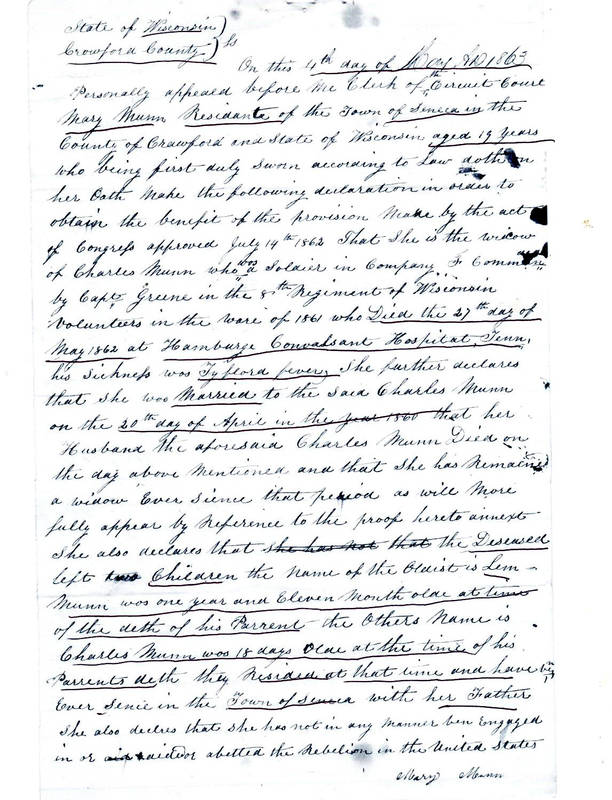 State of Wisconsin )
Crawford County ) Ss
On this 4th day of May AD 1863
Personally appeald before Me Clerk of the Circuit Coure
Mary Munn Residante of the Town of Seneca in the
County of Crawford and State of Wisconsin aged 19 Years
who being first duly Sworn according to Law doth on
her Oath Make the following declaration in order to
obtain the benefit of the provision Made by the act
of Congress approved July 14th 1862 That She is the widow
of Charles Munn who was a Soldier in Company F Comman
by Capt Greene in the 8th Regiment of Wisconsin
Volunteers in the ware of 1861 who Died the 27th day of
May 1862 at Hamburge Convalsant Hospital Tenn,
his Sickness was Tyflord fever, She further declares
that She was Married to the Said Charles Munn
on the 20th day of April in the year 1860 that her
Husband the aforesaid Charles Munn Died on
the day above Mentioned and that She has Remained
a widow Ever Sience that period as will More
fully appear by Reference to the proof hereto annext
She also declares that she has not that the Deseased
left two Children the Name of the Oldist is Lem
Munn was one year and Eleven Month olde at time
of the deth of his Parrent the Others Name is
Charles Munn was 18 days Olde at the time of his
Parrents deth they Resided at that time and have bin
Ever Senie in the Town of Seneca with her Father
She also declres that She has not in any Manner ben Engaged
in or aided or abetted the Rebelion in the United States
Mary Munn